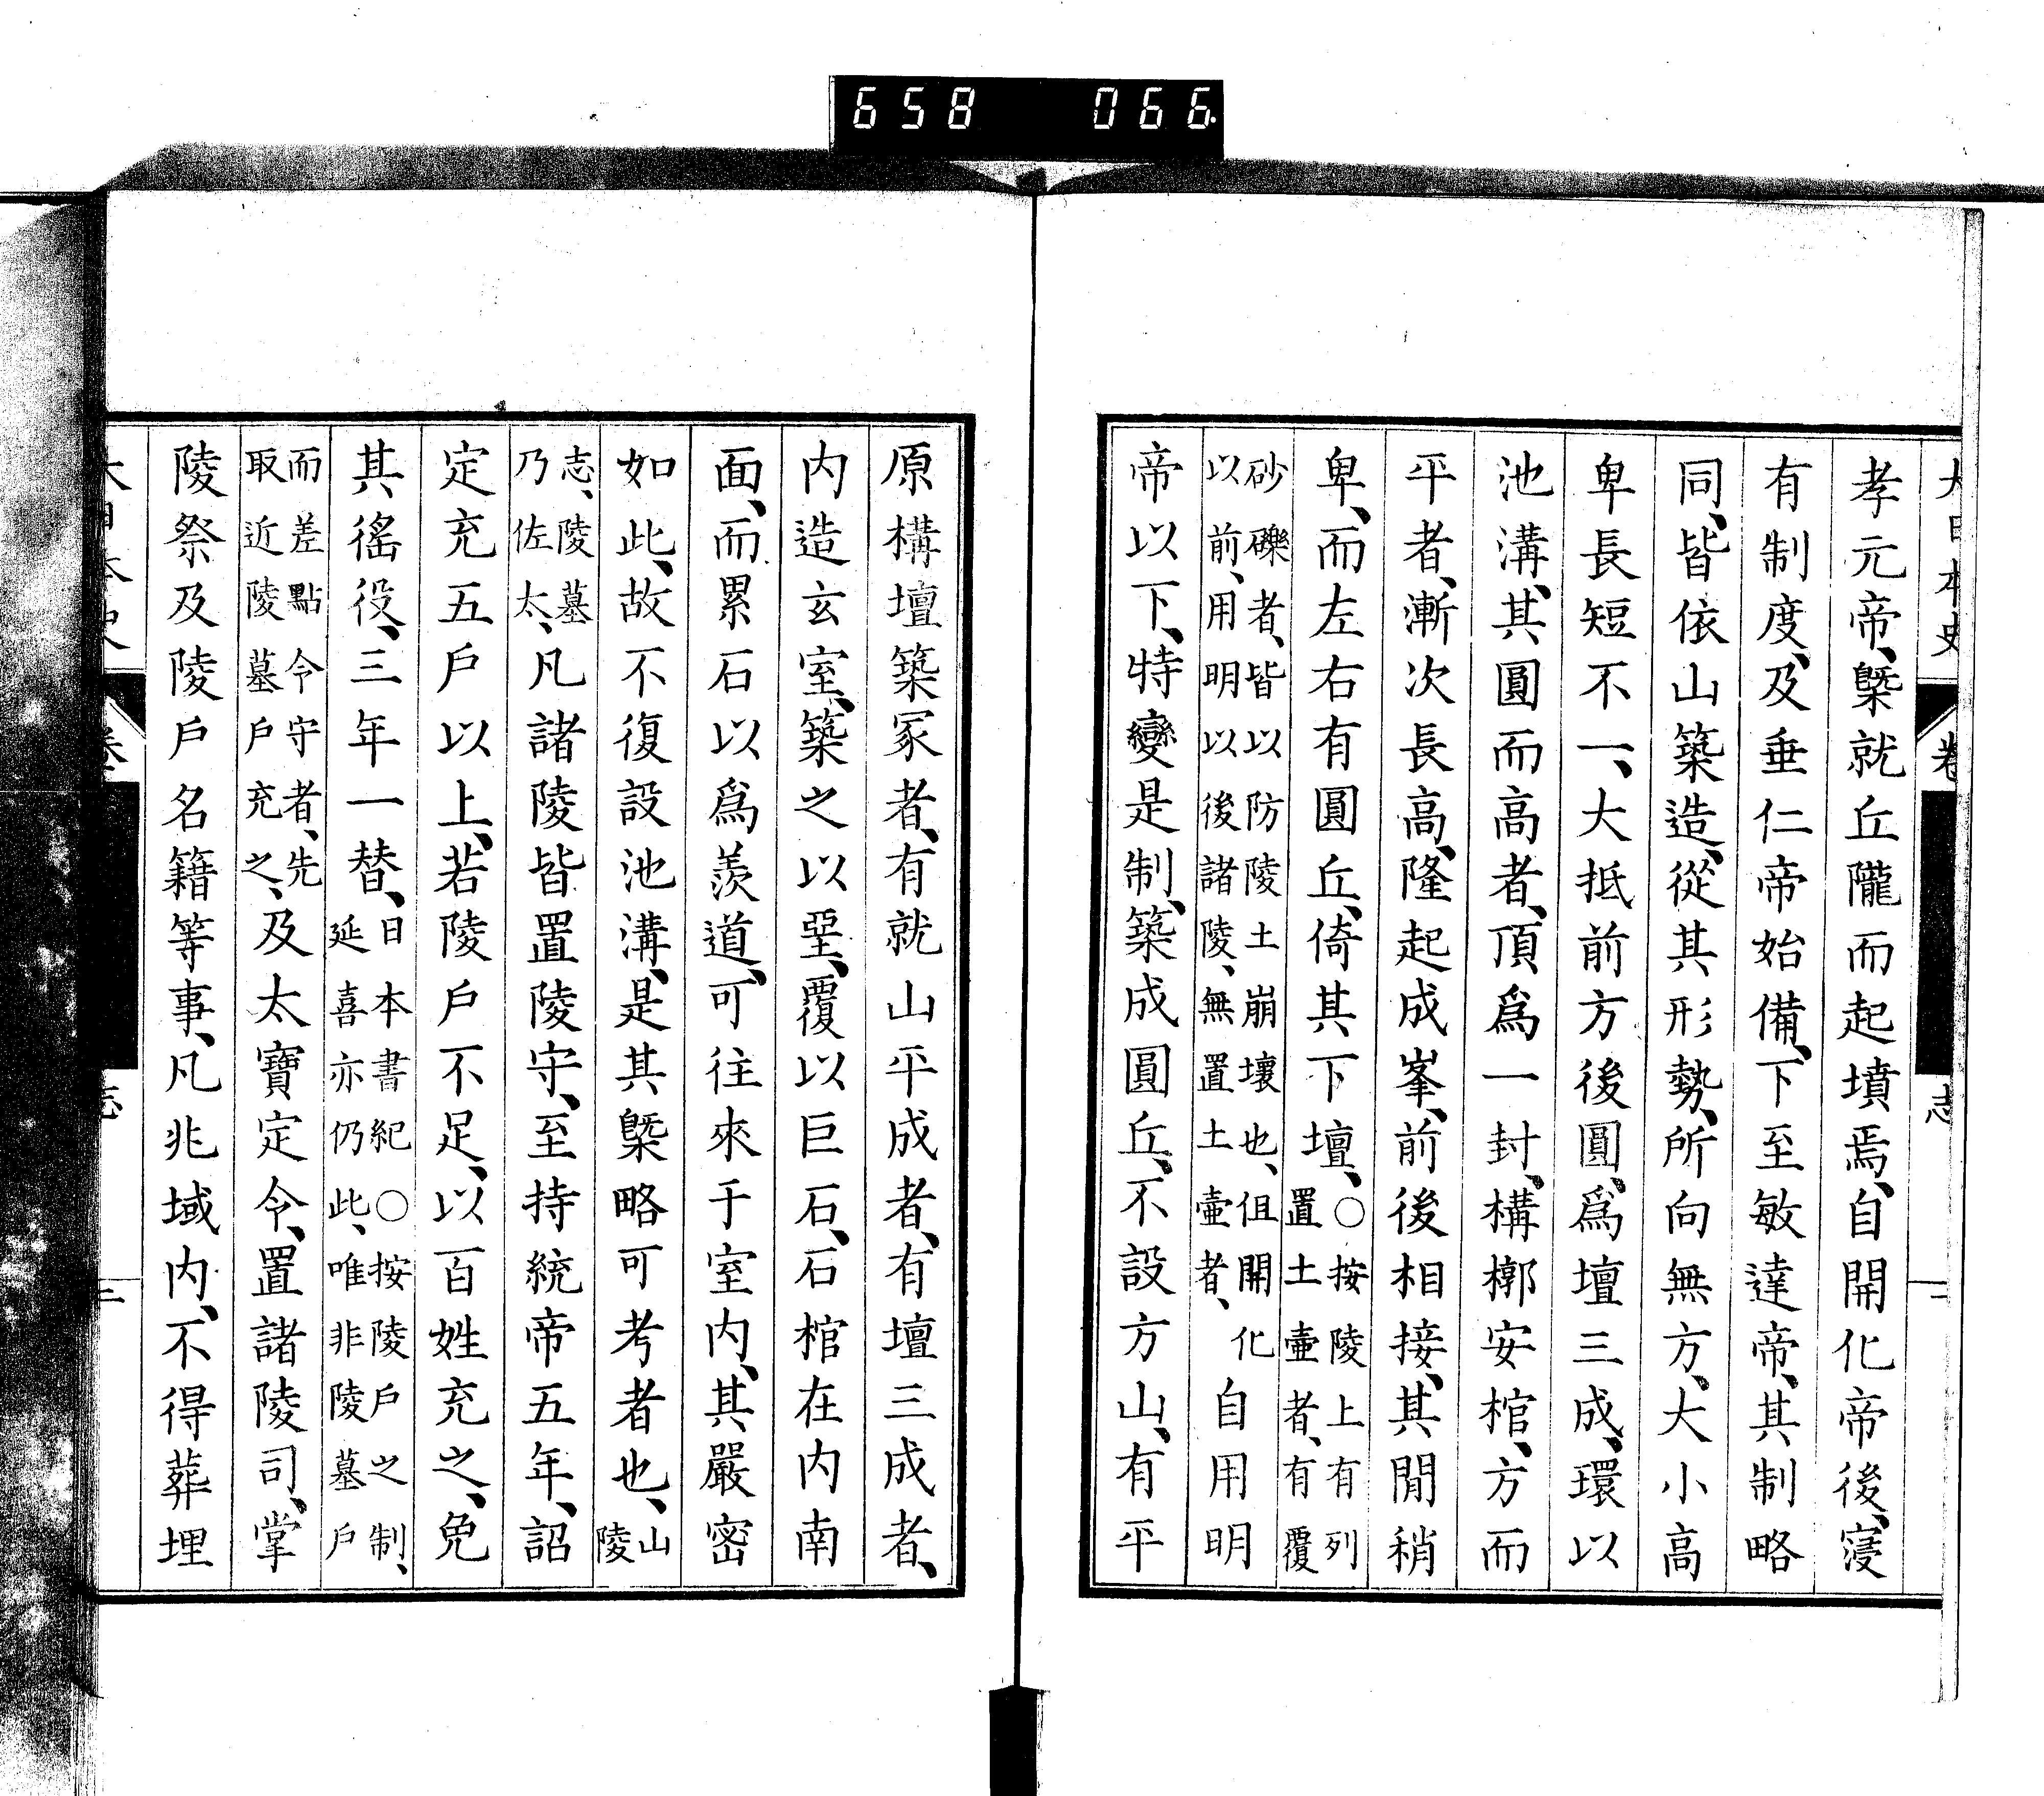 658 066
大日本史 卷 志 二
孝元帝、槩就丘隴而起墳焉、自開化帝後、寖
有制度、及垂仁帝始備、下至敏達帝、其制略
同、皆依山築造、從其形勢、所向無方、大小高
卑長短不一、大抵前方後圓、爲壇三成、環以
池溝、其圓而高者、頂爲一封、構槨安棺、方而
平者、漸次長高、隆起成峯、前後相接、其閒稍
卑、而左右有圓丘、倚其下壇、○按陵上有列
置土壷者、有覆
砂礫者、皆以防陵土崩壞也、但開化
以前、用明以後諸陵、無置土壷者、自用明
帝以下、特變是制、築成圓丘、不設方山、有平
原構壇築冢者、有就山平成者、有壇三成者、
内造玄室、築之以堊、覆以巨石、石棺在内南
面、而累石以爲羨道、可往來于室内、其嚴密
如此、故不復設池溝、是其槩略可考者也、山
陵
志、陵墓
乃佐太、凡諸陵皆置陵守、至持統帝五年、詔
定充五戸以上、若陵戸不足、以百姓充之、免
其徭役、三年一替、日本書紀○按陵戸之制、
延喜亦仍此、唯非陵墓戸
而差點令守者、先
取近陵墓戸充之、及太寶定令、置諸陵司、掌
陵祭及陵戸名籍等事、凡兆域内、不得葬埋
大日本史 卷 志 二